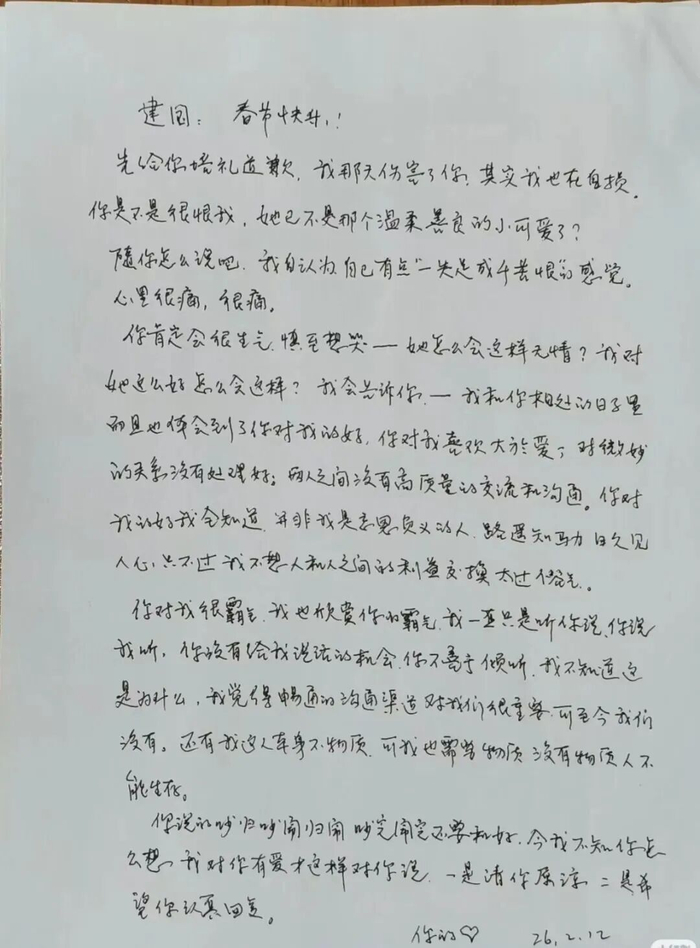 建国：春节快乐！
先给你培礼道歉，我那天伤害了你，其实我也在自损。
你是不是很恨我，她已不是那个温柔善良的小可爱了？
随你怎么说吧，我自认为自己有点“一失足成千苦恨”的感觉。
心里很痛，很痛。
你肯定会很生气，慎至想哭——她怎么会这样无情？我对
她这么好怎么会这样？我会告诉你，——我和你相处的日子里
而且也体会到了你对我的好，你对我喜欢大於爱，对微妙
的关系没有处理好；两人之间没有高质量的交流和沟通。你对
我的好我全知道，并非我是忘恩负义的人，路遥知马力日久见
人心，只不过我不想人和人之间的利益交换太过俗气。
你对我很霸气，我也欣赏你的霸气，我一直只是听你说，你说
我听，你没有给我说话的机会，你不善于倾听，我不知道这
是为什么，我觉得畅通的沟通渠道对我们很重要，可至今我们
没有。还有我这人本身不物质，可我也需要物质，没有物质人不
能生存。
你说的吵归吵闹归闹吵完闹完还要和好，今我不知你怎
么想，我对你有爱才这样对你说，一是请你原谅，二是希
望你认真回复。
你的♡ 26.2.12